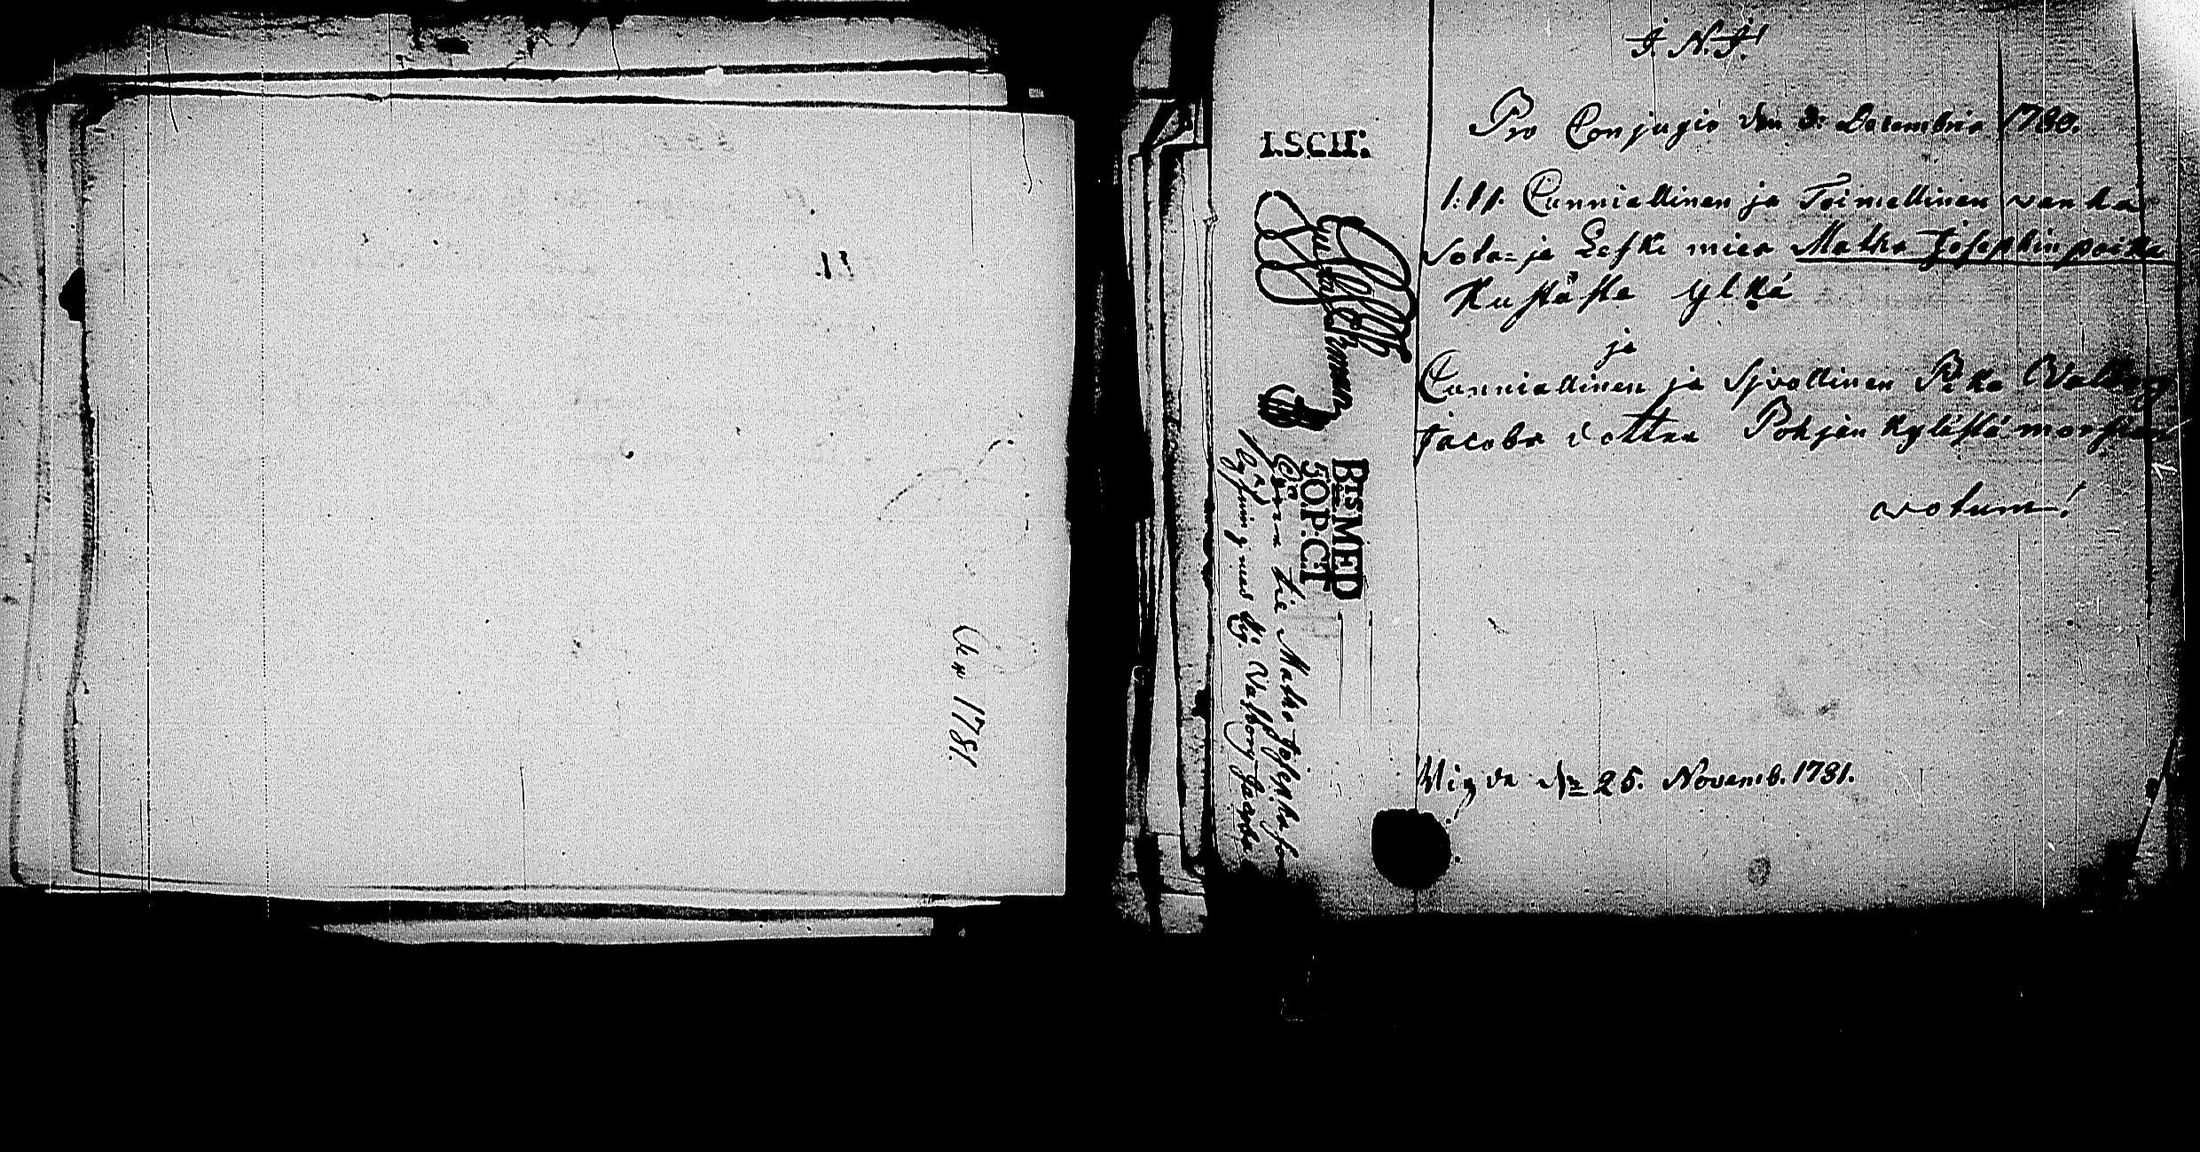 Åhr 1781.
J. N. J!
Pro Conjugio den 3: Decembris 1780.
1:ll. Cunniallinen ja Toimellinen vanha
Sota= ja Leski mies Matts Josephin poika
ylkä
ja
Cunniallinen ja Sivollinen Pika Valborg
Jacobs dotter Pohjan kylästä morsian
votum!
Vigde d:n 25. Novemb. 1781.
1.SCH:
BtsMED
50P.CT
til Matts Josephs
med Valborg Jacobs